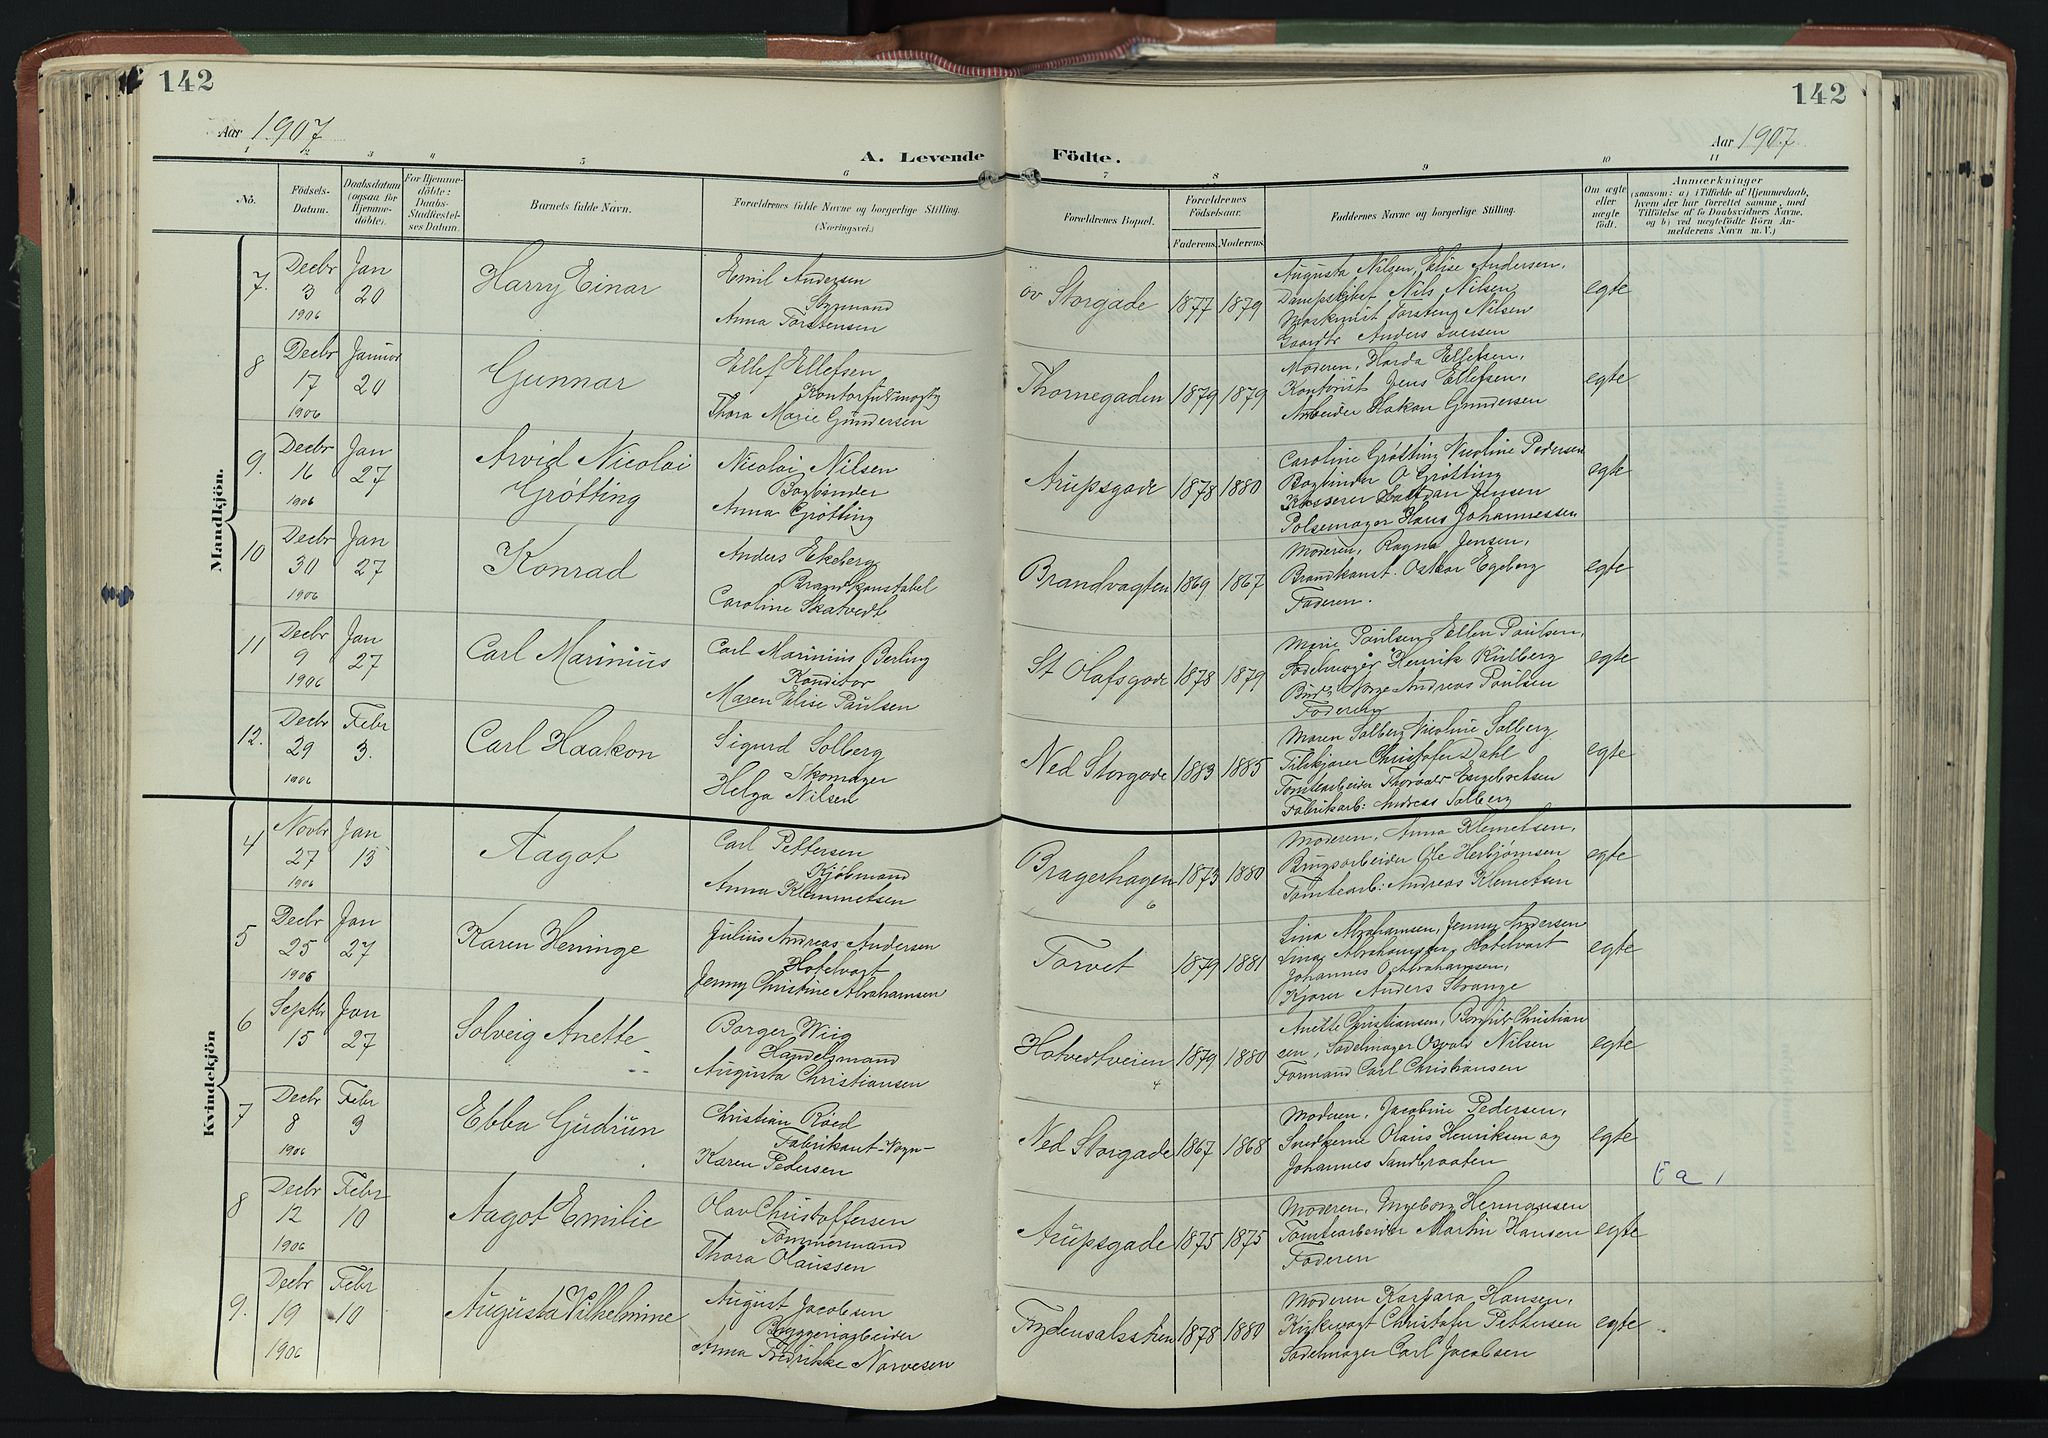 142
142
Aar 1907
Aar 1907
A. Levende Födte.
1 2 3 4 5 6 7 8 9 10 11
No.
Födsels-
Datum.
Daabsdatum
(ogsaa for
Hjemme-
döbte).
For Hjemme-
döbte:
Daabs-
Stadfæstel-
ses Datum.
Barnets fulde Navn.
Forældrenes fulde Navne og borgerlige Stilling.
(Næringsvei.)
Forældrenes Bopæl.
Forældrenes
Födselsaar.
Faderens.
Moderens.
Faddernes Navne og borgerlige Stilling.
Om ægte
eller
uægte
födt.
Anmærkninger
(saasom: a) i Tilfælde af Hjemmedaab,
hvem der har forrettet samme, med
Tilföielse af to Daabsvidners Navne,
og b) ved uægtefödte Börn An-
melderens Navn m. V.)
Mandkjön.
7.
Decbr
3
1906
Jan
20
Harry Einar
Emil Andersen
Anna Torstensen
ov Storgade
1877
1879
Augusta Nilsen, Elise Andersen,
Nils Nilsen
Torstens Nilsen
Anders Iversen
egte
8
Decbr
17
1906
Januar
20
Gunnar
Ellef Ellefsen
Kontorfuldmægtig
Thora Marie Gundersen
Thornegaden
1879
1879
Moderen, Harda Ellefsen,
Kontorist Jens Ellefsen,
Arbeider Hakon Gundersen
egte
9.
Decbr
16
1906
Jan
27
Arvid Nicolai
Grøtting
Nicolai Nilsen
Bogbinder
Anna Grøtting
Arupsgade
1878
1880
Caroline Grøtting Nicoline Pedersen
Bogbinder O Grøtting
Kasserer Halfdan Jensen
Pølsemager Hans Johannessen
egte
10
Decbr
30
1906
Jan
27
Konrad
Anders Ekeberg
Brandkonstabel
Caroline Skatvedt
Brandvagten
1869
1867
Moderen, Ragna Jensen,
Brandkonst. Oskar Egeberg
Faderen.
egte
11
Decbr
9
1906
Jan
27
Carl Marinius
Carl Marinius Berling
Konditor
Maren Elise Paulsen
St Olafsgade
1878
1879
Marie Paulsen, Ellen Paulsen,
Sadelmager Henrik Kulberg
Andreas Paulsen
Faderen
egte
12.
Decbr
29
1906
Febr
3.
Carl Haakon
Sigurd Solberg
Skomager
Helga Nilsen
Ned Storgade
1883
1885
Maren Solberg Nicoline Solberg
Christofer Dahl
Tomtearbeider Thorvald Engebretsen
Fabrikarb: Andreas Solberg
egte
Kvindekjön
4
Novbr
27
1906
Jan
13
Aagot
Carl Pettersen
Kjøbmand
Anna Klemmetsen
Bragerhagen
6
1873
1880
Moderen, Anna Klemetsen,
Brugsarbeider Ole Herbjørnsen
Tomtearb: Andreas Klemetsen
egte
5
Decbr
25
1906
Jan
27
Karen Heninge
Julius Andreas Andersen
Hotelvært
Jenny Christine Abrahamsen
Torvet
1879
1881
Lina Abrahamsen, Jenny Andersen
Lina Abrahamsen, Hotelvært
Johannes O Abrahamsen,
Kjører Anders Strange
egte
6
Septbr
15
Jan
27
Solveig Anette
Borger Wiig
Handelsmand
Augusta Christiansen
Hotvedtveien
4
1879
1880
Anette Christiansen, Borghild Christian
sen, Sadelmager Osvald Nilsen
Formand Carl Christiansen
egte
7
Decbr
8
1906
Febr
9
Ebba Gudrun
Christian Røed
Fabrikant-Vogn-
Karen Pedersen
Ned Storgade
1867
1868
Moderen, Jacobine Pedersen,
Snedkerne Olaus Henriksen og
Johannes Sandbraaten
egte
Ea
8
Decbr
12
1906
Febr
10
Aagot Emilie
Olav Christoffersen
Tømmermand
Thora Olaussen
Arupsgade
1875
1875
Moderen, Ingeborg Hermansen
Tomtearbeider Martin Hansen
Faderen
egte
9.
Decbr
19
1906
Febr
10
Augusta Vilhelmine
August Jacobsen
Bryggeriarbeider
Anna Fredrikke Norvesen
Frydendalsstien
1878
1880
Moderen Barbara Hansen,
Kirkevagt Christofer Pettersen
Sadelmager Carl Jacobsen
egte